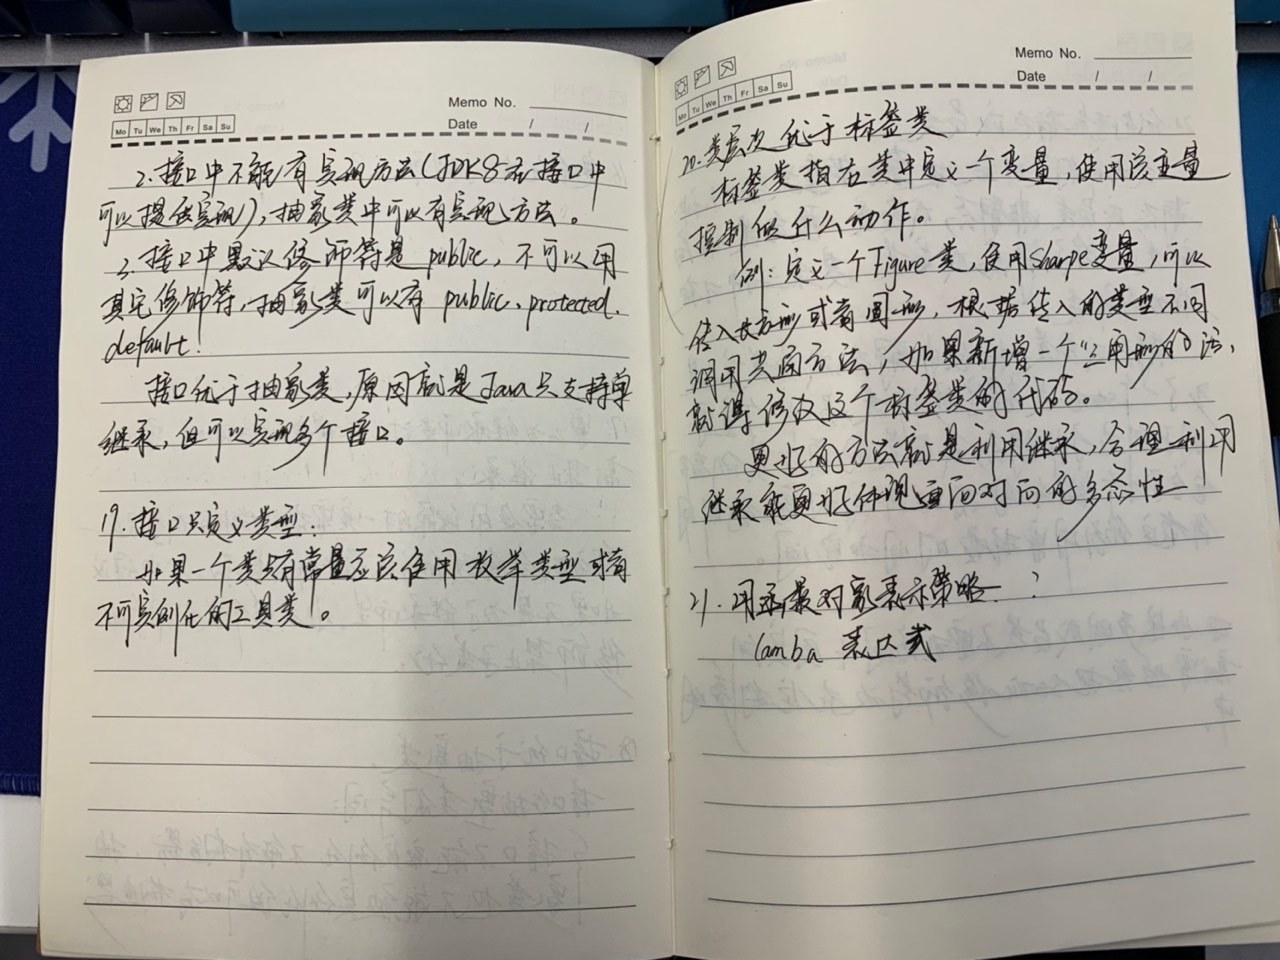 Memo No.
Mo Tu We Th Fr Sa Su
Date / /
2. 接口中不能有实现方法(JDK8在接口中
可以提供实现), 抽象类中可以有实现方法。
3. 接口中默认修饰符是 public, 不可以用
其它修饰符, 抽象类可以有 public、protected、
default!
接口优于抽象类, 原因就是Java只支持单
继承, 但可以实现多个接口。
19. 接口只定义类型:
如果一个类只有常量应该使用枚举类型或者
不可实例化的工具类。
Memo No.
Mo Tu We Th Fr Sa Su
Date / /
20. 类层次优于标签类
标签类指在类中定义一个变量, 使用该变量
控制做什么动作。
例: 定义一个Figure类, 使用Sharpe变量, 可以
传入长方形或者圆形, 根据传入的类型不同
调用共同方法, 如果新增一个三角形的话,
就得修改这个标签类的代码。
更好的方法就是利用继承, 合理利用
继承能更好体现面向对向的多态性
21. 用函数对象表示策略 ?
lamba 表达式